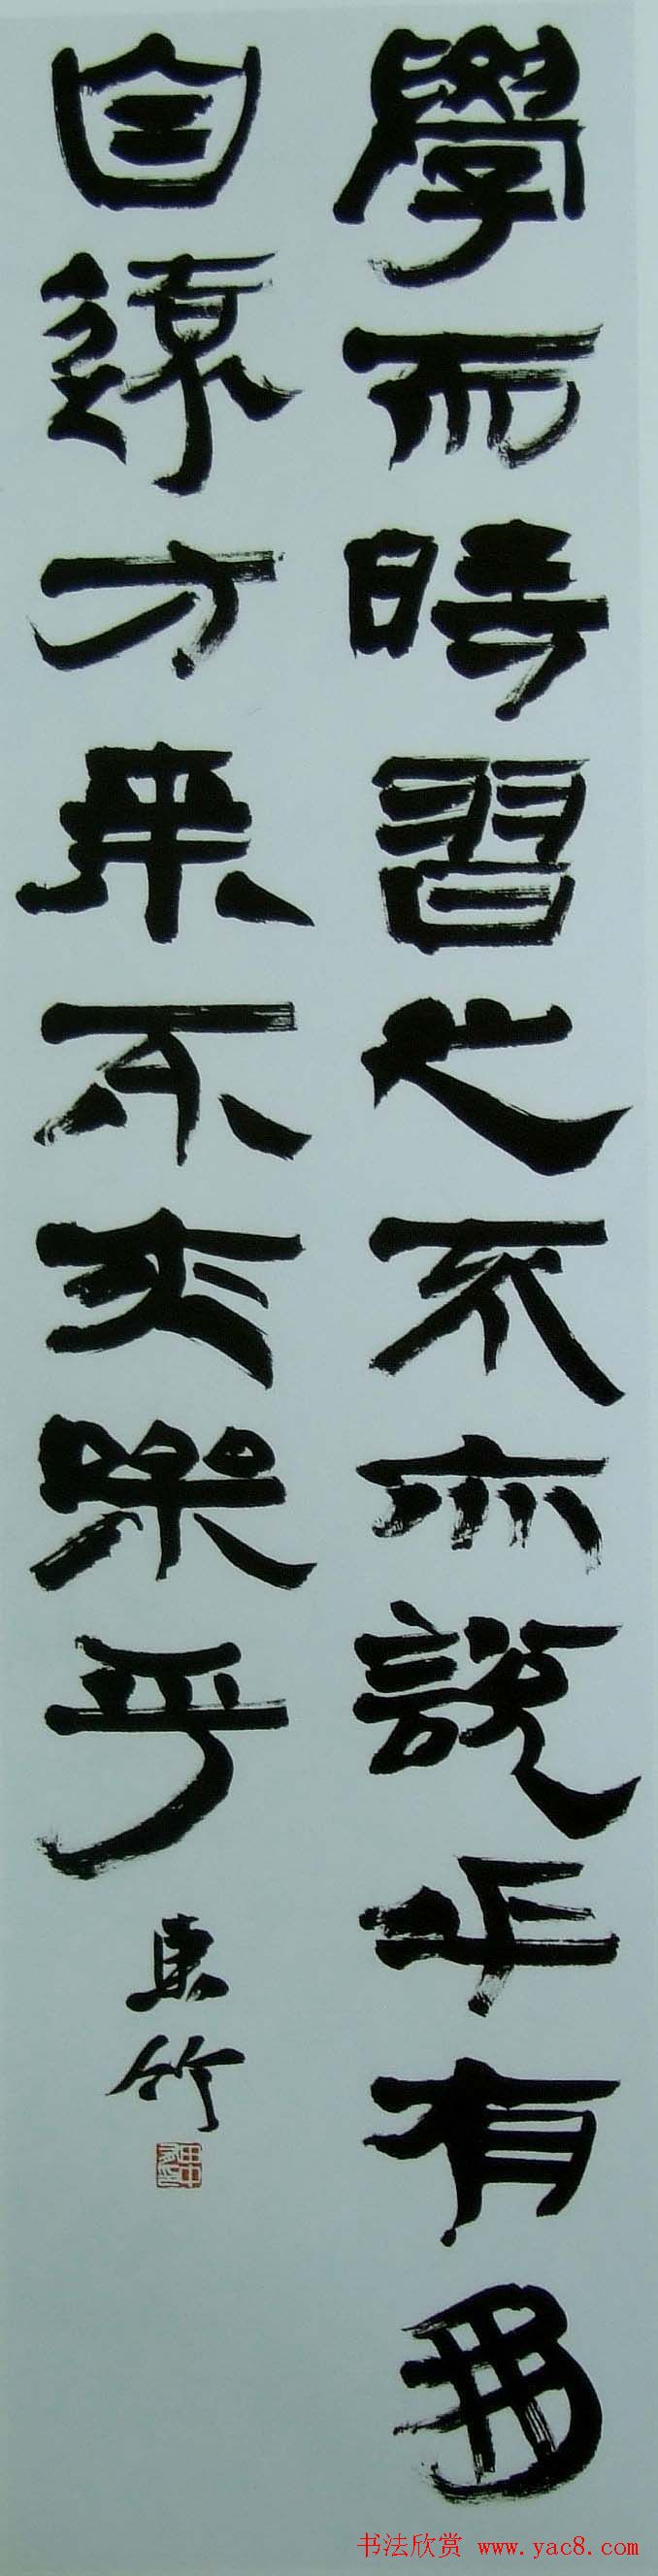 學而時習之不亦說乎有朋
自遠方来不亦樂乎
東竹
书法欣赏 www.yac8.com